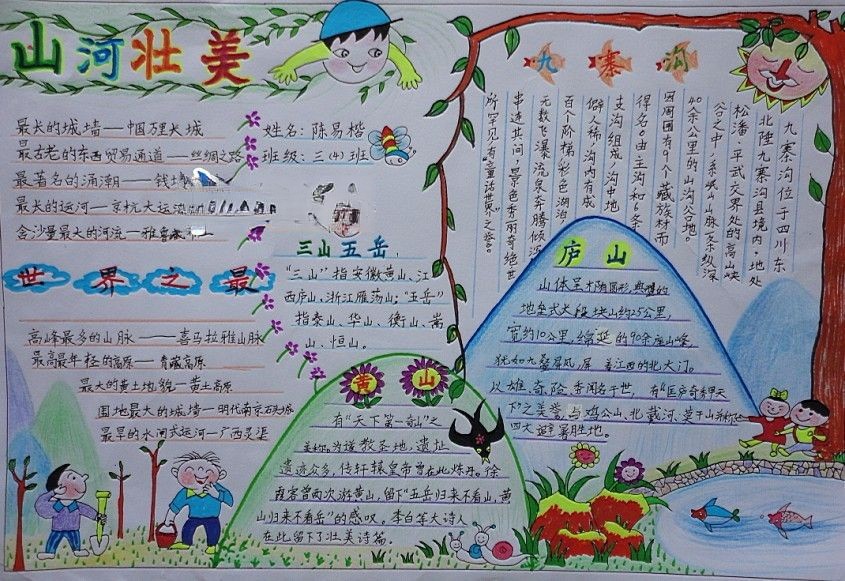 山河壮美
最长的城墙—中国万里长城
最古老的东西贸易通道—丝绸之路
最著名的涌潮—钱
最长的运河—京杭大运
含沙量最大的河流—雅鲁
姓名：陈易楷
班级：三（4）班
世界之最
高峰最多的山脉—喜马拉雅山脉
最高最年轻的高原—青藏高原
最大的黄土地貌—黄土高原
围地最大的城墙—明代南京石头城
最早的水闸式运河—广西灵渠
三山五岳：
“三山”指安徽黄山、江
西庐山、浙江雁荡山；“五岳”
指泰山、华山、衡山、嵩
山、恒山。
黄山
有“天下第一奇山”之
美称。为道教圣地，遗址
遗迹众多，传轩辕皇帝曾在此炼丹。徐
霞客曾两次游黄山，留下“五岳归来不看山，黄
山归来不看岳”的感叹。李白等大诗人
在此留下了壮美诗篇
九寨沟
九寨沟位于四川东
北陲九寨沟县境内。地处
松潘、平武交界处的高山峡
谷之中，系岷山山脉久纵深
40余公里的山沟谷地。
因周围有9个藏族村而
得名。由主沟和6条
支沟组成。沟中地
僻人稀，沟内有成
百个阶梯彩色湖泊
无数飞瀑流泉奔腾倾泻
串连其间，景色秀丽奇绝世
所罕见，有“童话世界”之誉。
庐山
山体呈椭圆形，典型的
地垒式大段块山约25公里，
宽约10公里，绵延的90余座山峰，
犹如九叠屏风，屏着江西的北大门。
以雄、奇、险、秀闻名于世，有“匡庐奇秀甲天
下”之美誉。与鸡公山、北戴河、莫干山并称
四大避暑胜地。